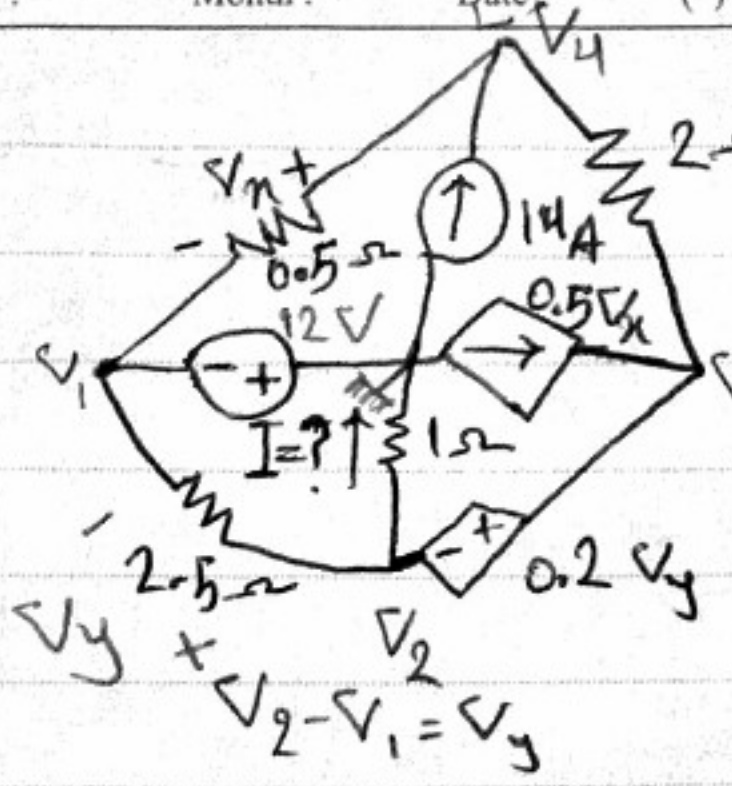 V4
Vx +
-
0.5 Ω
2
14 A
12 V
0.5 Vx
V1
- +
I=? ↑
1 Ω
- +
0.2 Vy
-
2.5 Ω
Vy +
V2
V2 - V1 = Vy